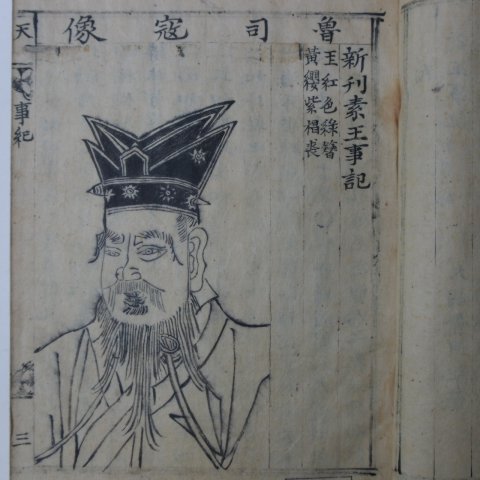 魯司寇像
新刊素王事記
王紅色綠簪
黃纓紫裮喪
天
事紀
三